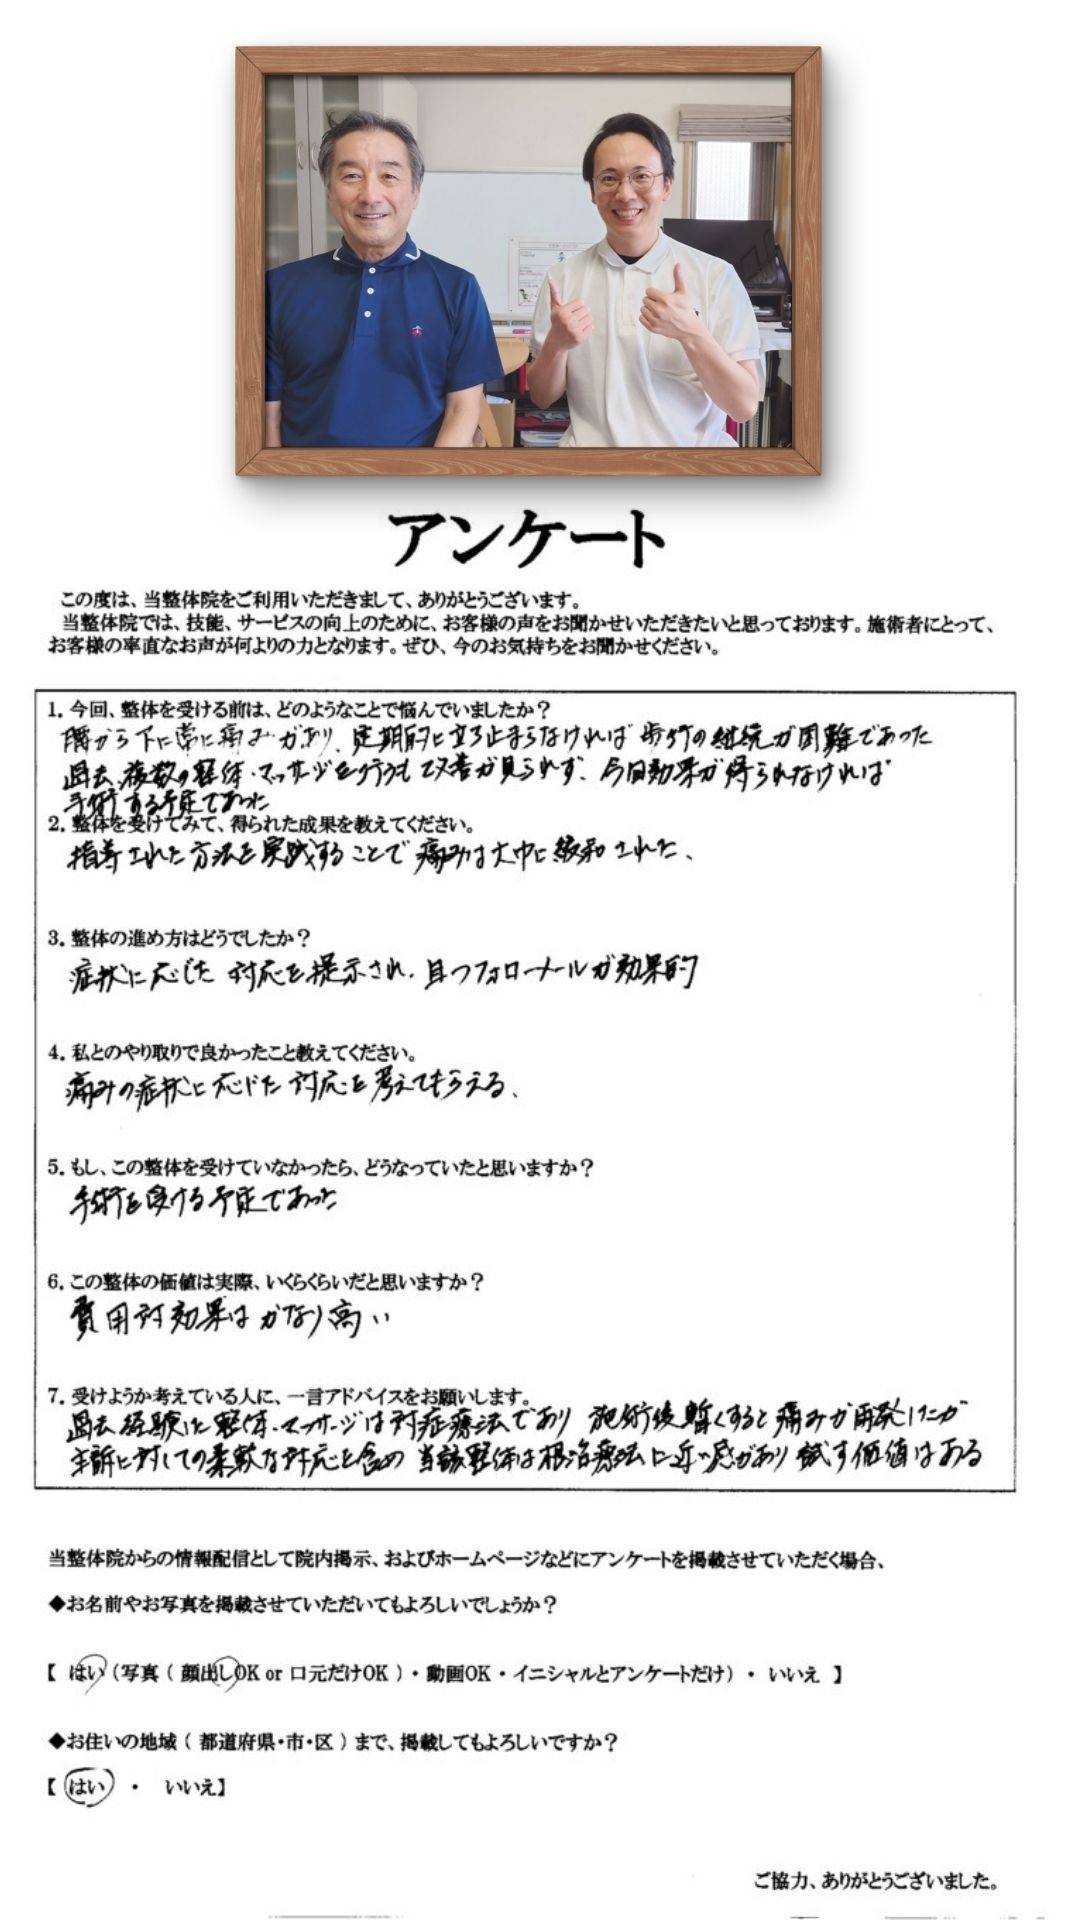 アンケート
この度は、当整体院をご利用いただきまして、ありがとうございます。
当整体院では、技能、サービスの向上のために、お客様の声をお聞かせいただきたいと思っております。施術者にとって、
お客様の率直なお声が何よりの力となります。ぜひ、今のお気持ちをお聞かせください。
1. 今回、整体を受ける前は、どのようなことで悩んでいましたか？
腰から下に常に痛みがあり、定期的に立ち止まらなければ歩行の継続が困難であった
過去、複数の整体・マッサージを行うも改善が見られず、今回効果が得られなければ
手術する予定であった
2. 整体を受けてみて、得られた成果を教えてください。
指導された方法を実践することで痛みは大巾に緩和された、
3. 整体の進め方はどうでしたか？
症状に応じた対応を提示され、且つフォローメールが効果的
4. 私とのやり取りで良かったこと教えてください。
痛みの症状に応じた対応を考えてもらえる、
5. もし、この整体を受けていなかったら、どうなっていたと思いますか？
手術を受ける予定であった
6. この整体の価値は実際、いくらくらいだと思いますか？
費用対効果はかなり高い
7. 受けようか考えている人に、一言アドバイスをお願いします。
過去、経験した整体・マッサージは対症療法であり 施術後暫くすると痛みが再発したが
主訴に対しての柔軟な対応を含め 当該整体は根治療法に近い感があり 試す価値はある
当整体院からの情報配信として院内掲示、およびホームページなどにアンケートを掲載させていただく場合、
◆お名前やお写真を掲載させていただいてもよろしいでしょうか？
【 はい（写真（ 顔出しOK or 口元だけOK ）・動画OK・イニシャルとアンケートだけ）・ いいえ 】
◆お住いの地域（ 都道府県・市・区 ）まで、掲載してもよろしいですか？
【 はい ・ いいえ】
ご協力、ありがとうございました。